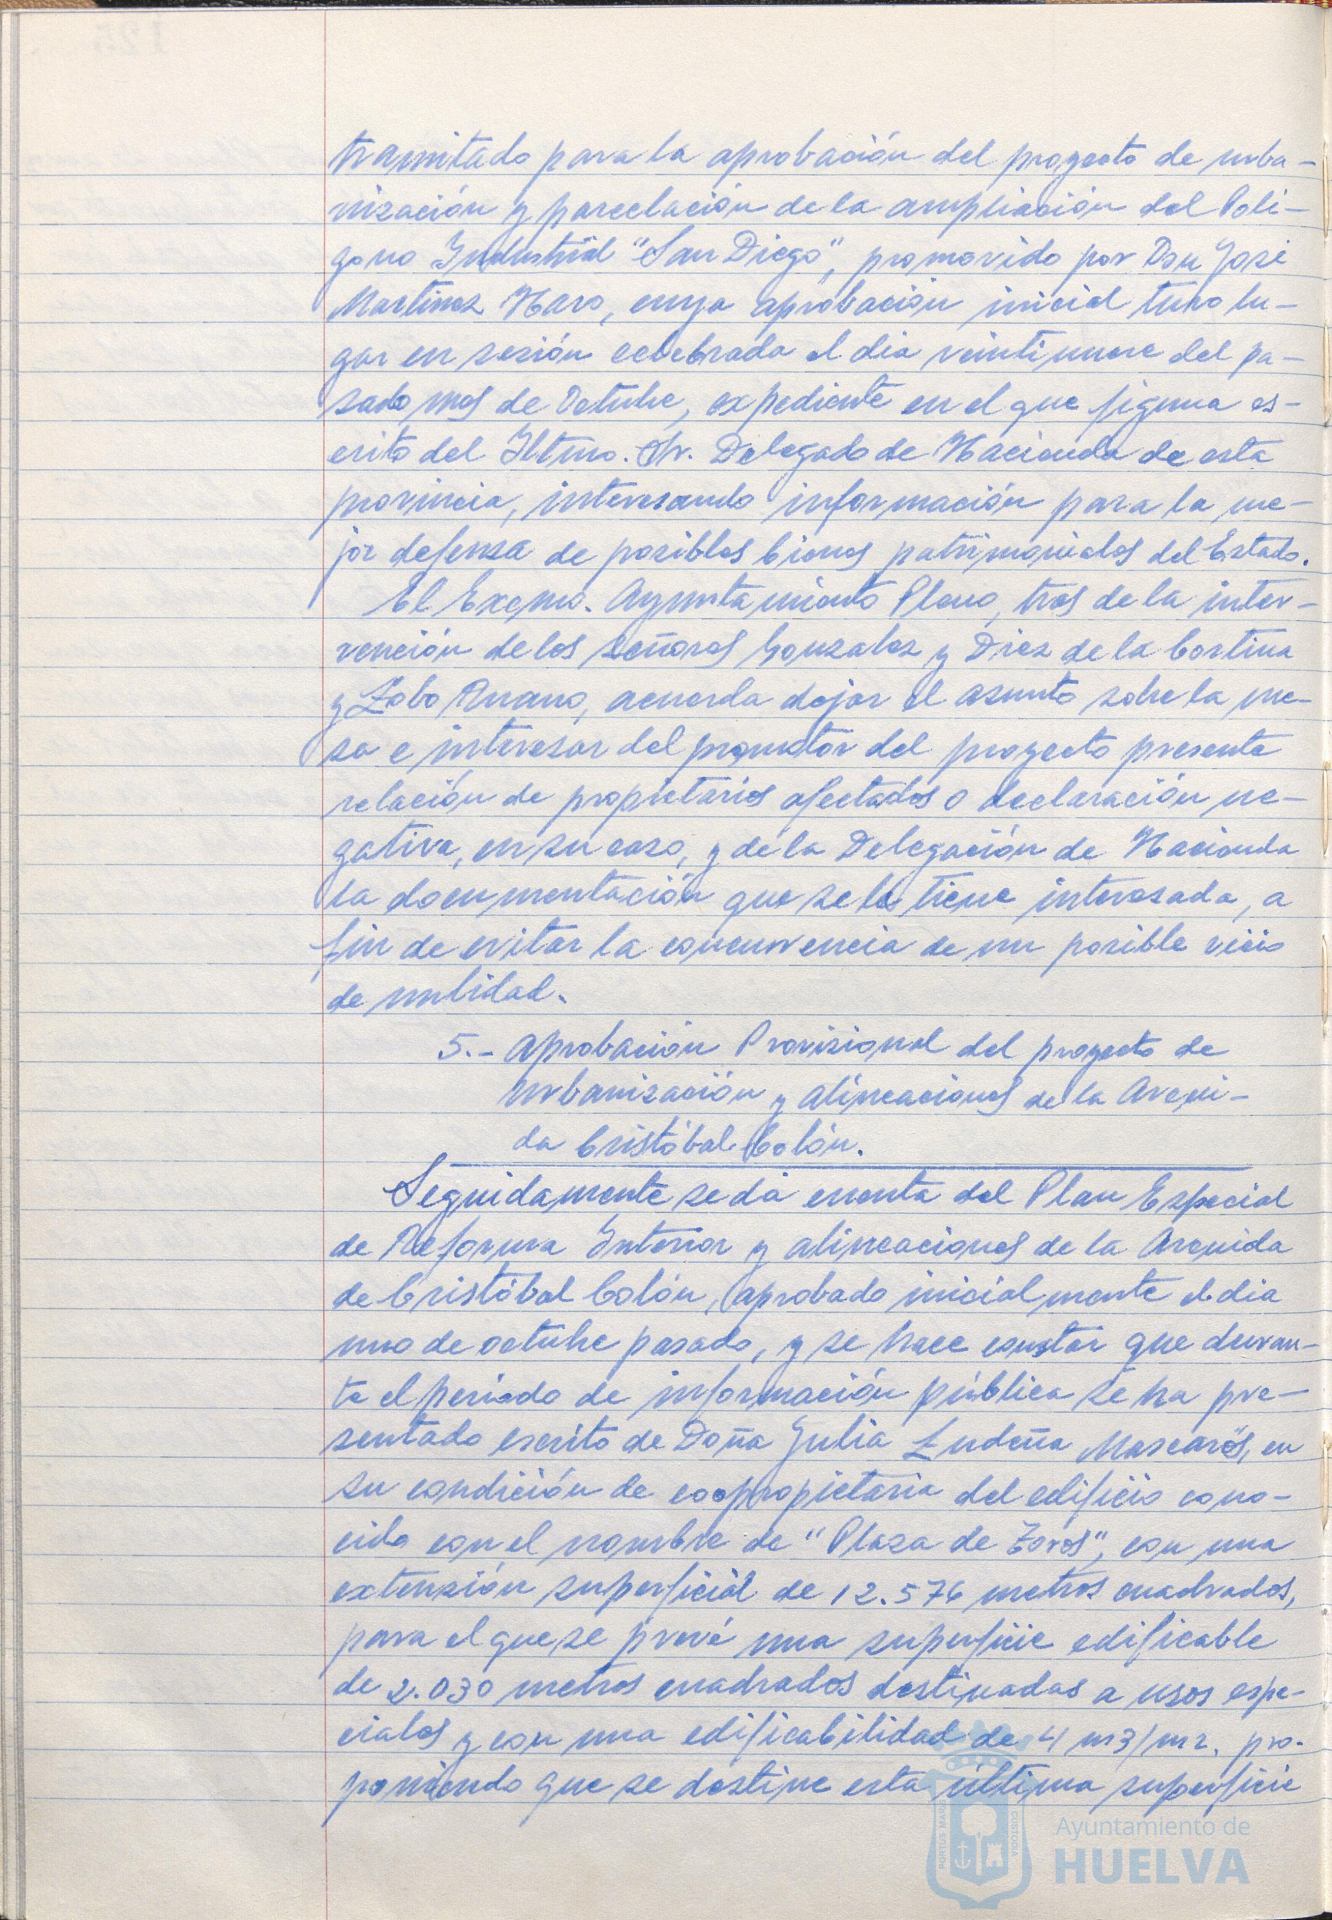 tramitado para la aprobación del proyecto de urba-
nización y parcelación de la ampliación del Polí-
gono Industrial "San Diego", promovido por Don José
Martinez Haro, cuya aprobación inicial tuvo lu-
gar en sesión celebrada el dia veintinueve del pa-
sado mes de Octubre, expediente en el que figura es-
crito del Iltmo. Sr. Delegado de Hacienda de esta
provincia, interesando información para la me-
jor defensa de posibles bienes patrimoniales del Estado.
El Excmo. Ayuntamiento Pleno, tras de la inter-
vención de los señores Gonzalez y Diez de la Cortina
y Lobo, acuerda dejar el asunto sobre la me-
sa e interesar del promotor del proyecto presente
relación de propietarios afectados o declaración ne-
gativa, en su caso, y de la Delegación de Hacienda
la documentación que se le tiene interesada, a
fin de evitar la concurrencia de un posible vicio
de nulidad.
5.- Aprobación Provisional del proyecto de
urbanización y alineaciones de la Aveni-
da Cristóbal Colón.
Seguidamente se dá cuenta del Plan Especial
de Reforma Interior y alineaciones de la Avenida
de Cristóbal Colón, aprobado inicialmente el dia
uno de octubre pasado, y se hace constar que duran-
te el periodo de información pública se ha pre-
sentado escrito de Doña Julia Ludeña Mascarós, en
su condición de coopropietaria del edificio cono-
cido con el nombre de "Plaza de Toros", con una
extensión superficial de 12.576 metros cuadrados,
para el que se prevé una superficie edificable
de 2.030 metros cuadrados destinadas a usos espe-
ciales y con una edificabilidad de 4 m3/m2. pro-
poniendo que se destine esta última superficie
PORTUS MARIS
CUSTODIA
Ayuntamiento de
HUELVA